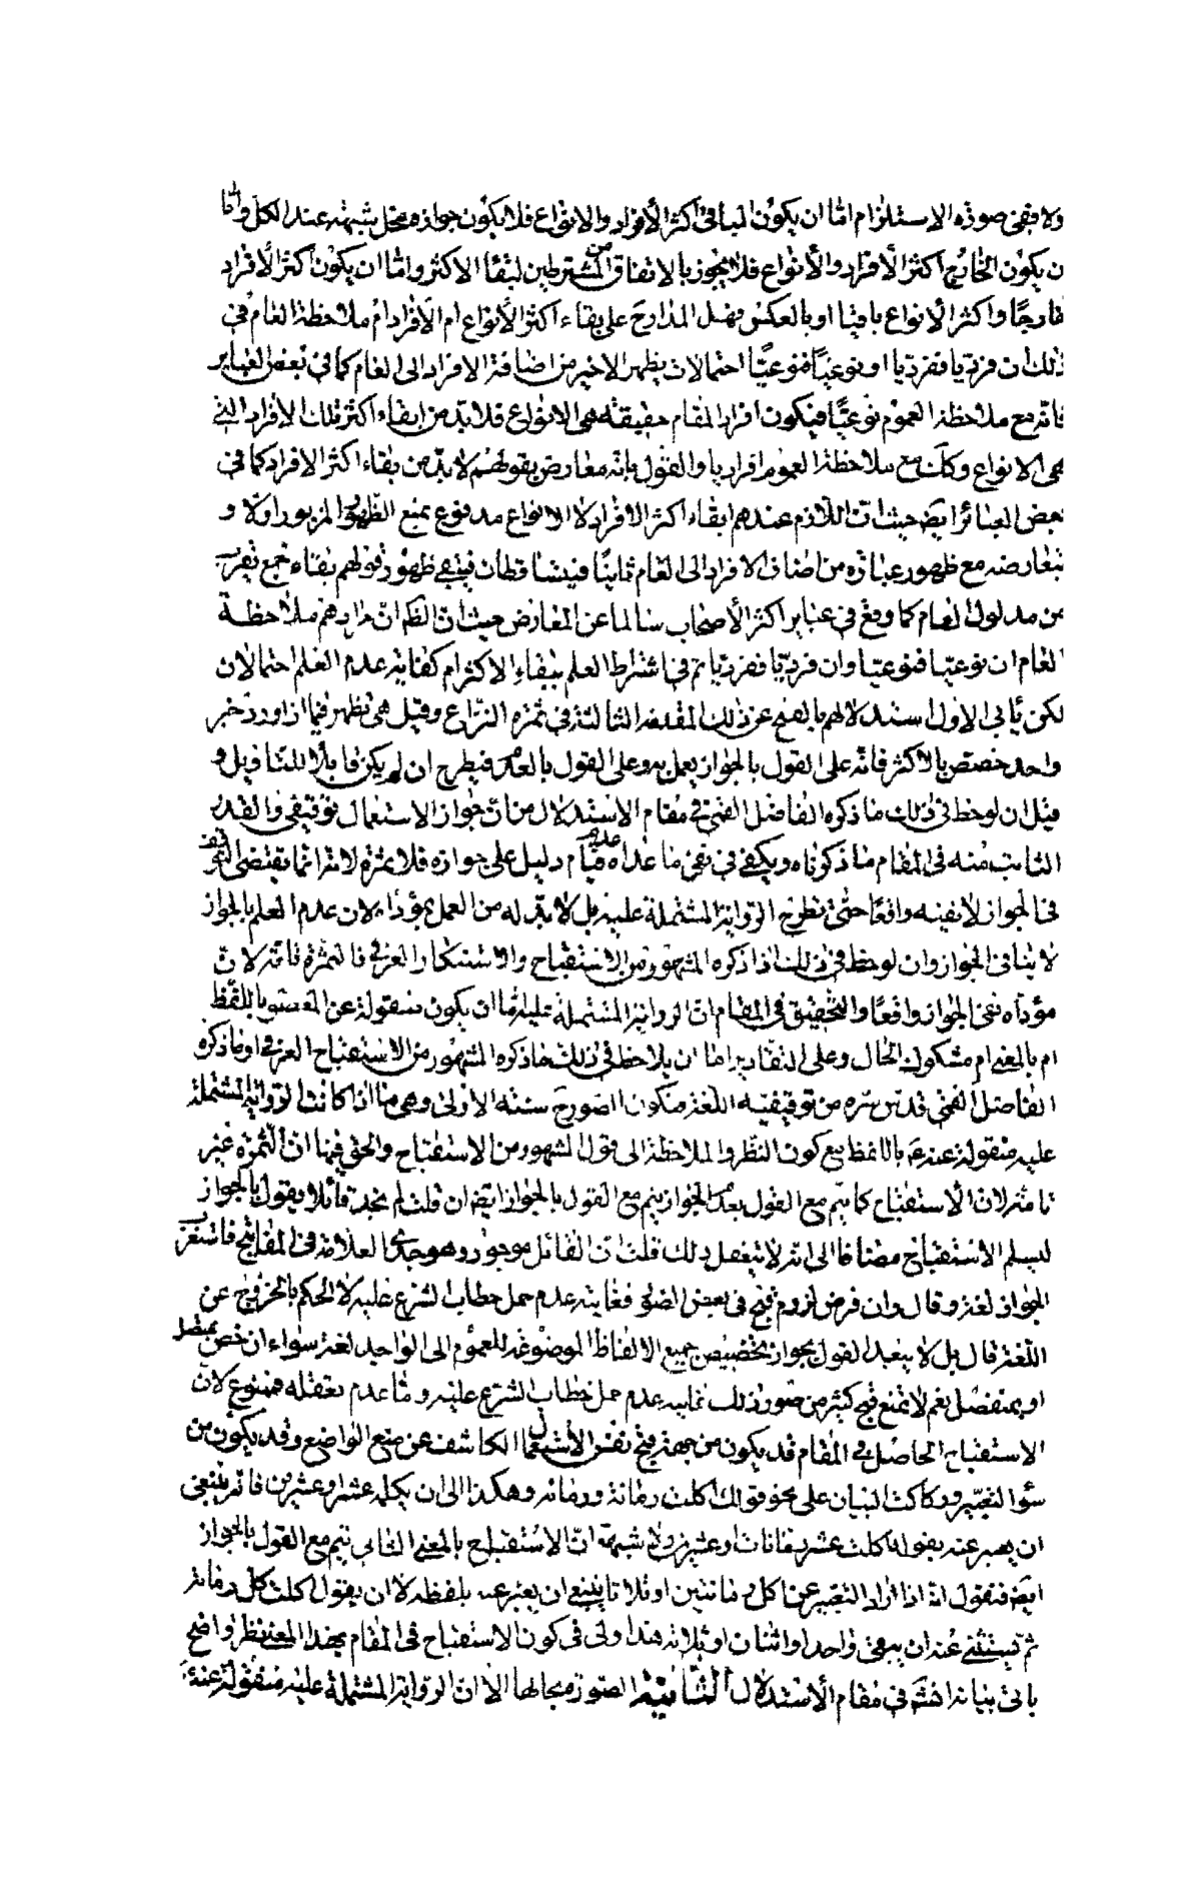 ولا ففى صورة الاستلزام اما ان يكون الباقى اكثر الأفراد والانواع فلا يكون جوازه محل شبهة عند الكل واما
ن يكون الخارج اكثر الأفراد والأنواع فلا يجوز بالاتفاق من المشترطين لبقاء الاكثر واما ان يكون اكثر الأفراد
خارجًا واكثر الأنواع باقيا او بالعكس فهل المدار ح على بقاء اكثر الأنواع ام الأفراد ام ملاحظة العام فى
ذلك ان فرديا ففرديا او نوعيًا فنوعيًا احتمالات يظهر الاخير من اضافة الافراد الى العام كما فى بعض العباير
فانه مع ملاحظة العموم نوعيًا فيكون افراد المقام حقيقة هى الانواع فلا بد من ابقاء اكثر تلك الافراد التى
هى الانواع وكك مع ملاحظة العموم افراديا والقول بانه معارض بقولهم لا بد من بقاء اكثر الافراد كما فى
بعض العبائر ايضا حيث ان اللازم عندهم ابقاء اكثر الافراد لا الانواع مدفوع بمنع الظهور المزبور اولا و
بتعارضه مع ظهور عبارة من اضاف الافراد الى العام ثانيًا فيتساقطان فيبقى ظهور قولهم بقاء جمع يقرب
من مدلول العام كما وقع فى عباير اكثر الأصحاب سالما عن المعارض حيث ان الظ ان مرادهم ملاحظة
العام ان نوعيا فنوعيا وان فرديًا ففرديًا ثم فى اشتراط العلم ببقاء الاكثر ام كفاية عدم العلم احتمالان
لكن يأبى الاول استدلالهم بالقبح عن ذلك المقدمة الثالثة فى ثمرة النزاع وقيل هى تظهر فيما اذا ورد خبر
واحد خصص بالأكثر فانه على القول بالجواز يعمل به وعلى القول بالعدم فيطرح ان لم يكن قابلا للتاويل و
قيل ان لوحظ فى ذلك ما ذكره الفاضل القمى فى مقام الاستدلال من ان جواز الاستعمال توقيفى والقدر
الثابت منه فى المقام ما ذكرناه ويكفى فى نفى ما عداه عدم قيام دليل على جوازه فلا ثمرة لانه انما يقتضى التوقف
فى الجواز لا نفيه واقعًا حتى تطرح الرواية المشتملة عليه بل لا بد له من العمل بمؤداه لان عدم العلم بالجواز
لا ينافى الجواز وان لوحظ فى ذلك ما ذكره المشهور من الاستقباح والاستنكار العرفى فالثمرة تامة لان
مؤداه نفى الجواز واقعًا والتحقيق فى المقام ان الرواية المشتملة عليه اما ان يكون منقولة عن المعصوم باللفظ
ام بالمعنى ام مشكوك الحال وعلى التقادير اما ان يلاحظ فى ذلك ما ذكره المشهور من الاستقباح العرفى او ما ذكره
الفاضل القمى قدس سره من توقيفيه اللغة فيكون الصور ح ستة الاولى وهى ما اذا كانت الرواية المشتملة
عليه منقولة عنه ع باللفظ مع كون النظر والملاحظة الى قول المشهور من الاستقباح والحق فيها ان الثمرة غير
تامة لان الاستقباح كما يتم مع القول بعدم الجواز يتم مع القول بالجواز ايضا ان قلت لم نجد قائلا يقول بالجواز
ليسلم الاستقباح مضافا الى انه لا يتعقل ذلك قلت ان القائل موجود وهو جدى العلامة فى المفاتيح فاستقرب
الجواز لغة وقال وان فرض لزوم قبح فى بعض الصور فغايته عدم حمل خطاب الشرع عليه لا الحكم بالخروج عن
اللغة قال بل لا يبعد القول بجواز تخصيص جميع الالفاظ الموضوعة للعموم الى الواحد لغة سواء ان خص بمتصل
او بمنفصل نعم لا نمنع قبح كثير من صور ذلك غايته عدم حمل خطاب الشرع عليه وما عدم تعقله فممنوع لان
الاستقباح الحاصل فى المقام قد يكون من جهة قبح نفس الاستعمال الكاشف عن منع الواضع وقد يكون من
سوء التعبير وركاكت البيان على نحو قولك اكلت رمانة ورمانه وهكذا الى ان يكمله عشر او عشرين فانه ينبغى
ان يعبر عنه بقوله اكلت عشر رمانات او عشرين ولا شبهة ان الاستقباح بالمعنى الثانى يتم مع القول بالجواز
ايضا فنقول انه اذا اراد التعبير عن اكل رمانتين او ثلاثا ينبغى ان يعبر عنه بلفظه لا ان يقول اكلت كل رمانة
ثم يستثنى عنه ان يبقى واحد او اثنان او ثلاثه هذا ولى فى كون الاستقباح فى المقام بهذا المعنى نظر واضح
ياتى بيانه انشـ فى مقام الأستدلال الثانية الصورة مجالها الا ان الرواية المشتملة عليه منقولة عنه ع